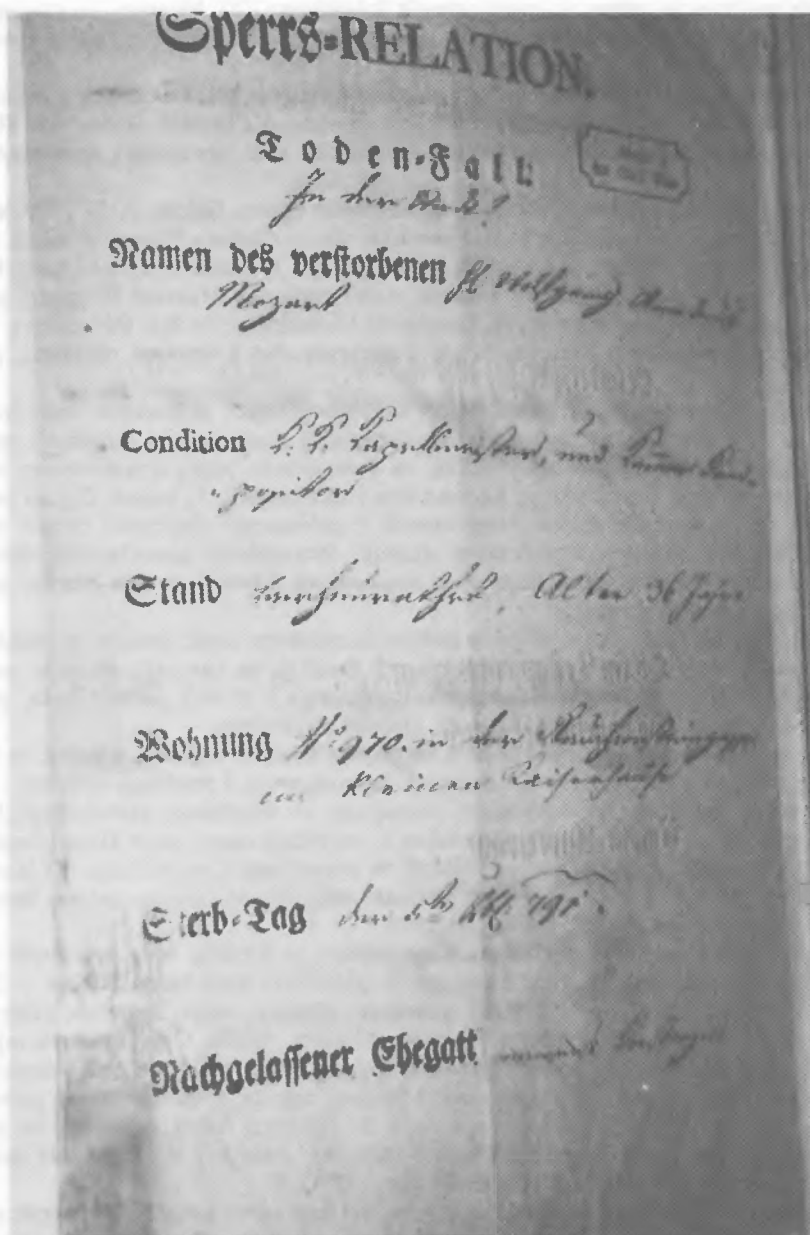 Sperrs-RELATION.
Toden-Fall
In der Stadt
Namen des verstorbenen H. Wolfgang Amadeus
Mozart
Condition K: K: Kapellmeister, und Kammer Kom-
positor
Stand verheurathet, Alter 36 Jahr
Wohnung No 970. in der Rauhensteingasse
im kleinen Kaiserhause
Sterb-Tag den 5ten 791.
Nachgelassener Ehegatt